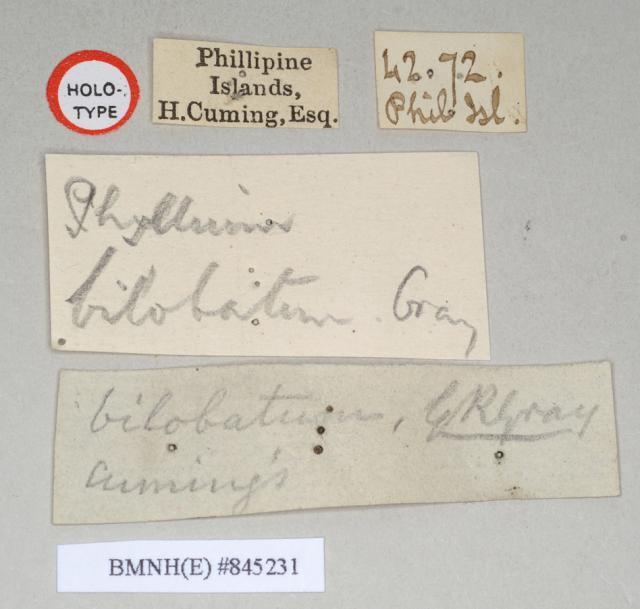 HOLO-
TYPE
Phillipine
Islands,
H.Cuming, Esq.
42.72.
Phil Isl.
Phyllium
bilobatum. Gray
bilobatum, GRGray
Cuming's
BMNH(E) #845231